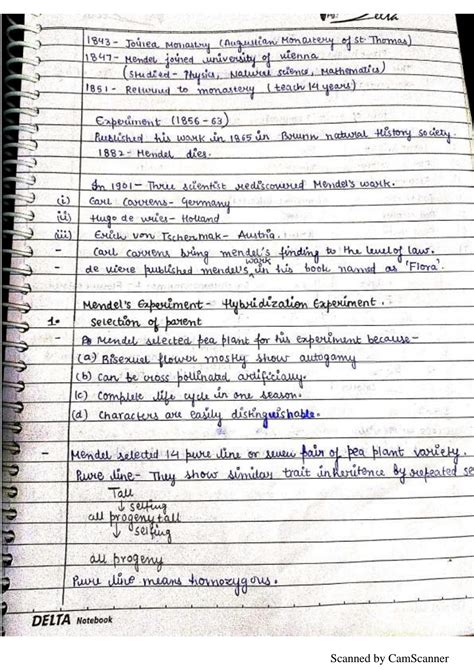 Delta
1843 - Joined Monastry (Augustian Monastery of St Thomas)
1847 - Mendel joined university of vienna
(Studied - Physics, Natural science, Mathematics)
1851 - Returned to monastery (teach 14 years)
Experiment (1856-63)
Published his work in 1865 in Brunn natural History society
1882 - Mendel dies.
In 1901 - Three scientist rediscovered Mendel's work.
(i) Carl Carrens - Germany
(ii) Hugo de vries - Holland
(iii) Erich von Tschermak - Austria.
- Carl Carrens bring mendel's finding to the level of law.
- de viere published mendel's work in his book named as 'Flora'.
Mendel's Experiment - Hybridization Experiment.
1. Selection of parent
- Mendel selected pea plant for his experiment because -
(a) Bisexual flower mostly show autogamy
(b) Can be cross pollinated artificially.
(c) Complete life cycle in one season.
(d) Characters are easily distinguishable.
- Mendel selected 14 pure line or seven pair of pea plant variety.
Pure line - They show similar trait inheritence by repeated se
Tall
↓ selfing
all progeny tall
↓ selfing
all progeny
Pure line means homozygous.
DELTA Notebook
Scanned by CamScanner